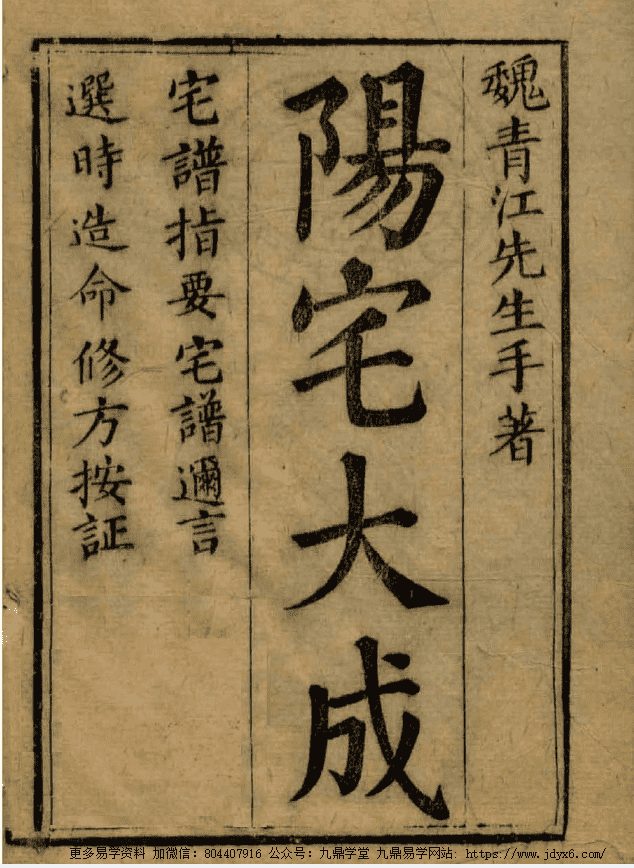 魏青江先生手著
陽宅大成
宅譜指要宅譜邇言
選時造命修方按証
更多易学资料 加微信：804407916 公众号：九鼎学堂 九鼎易学网站：https://www.jdyx6.com/